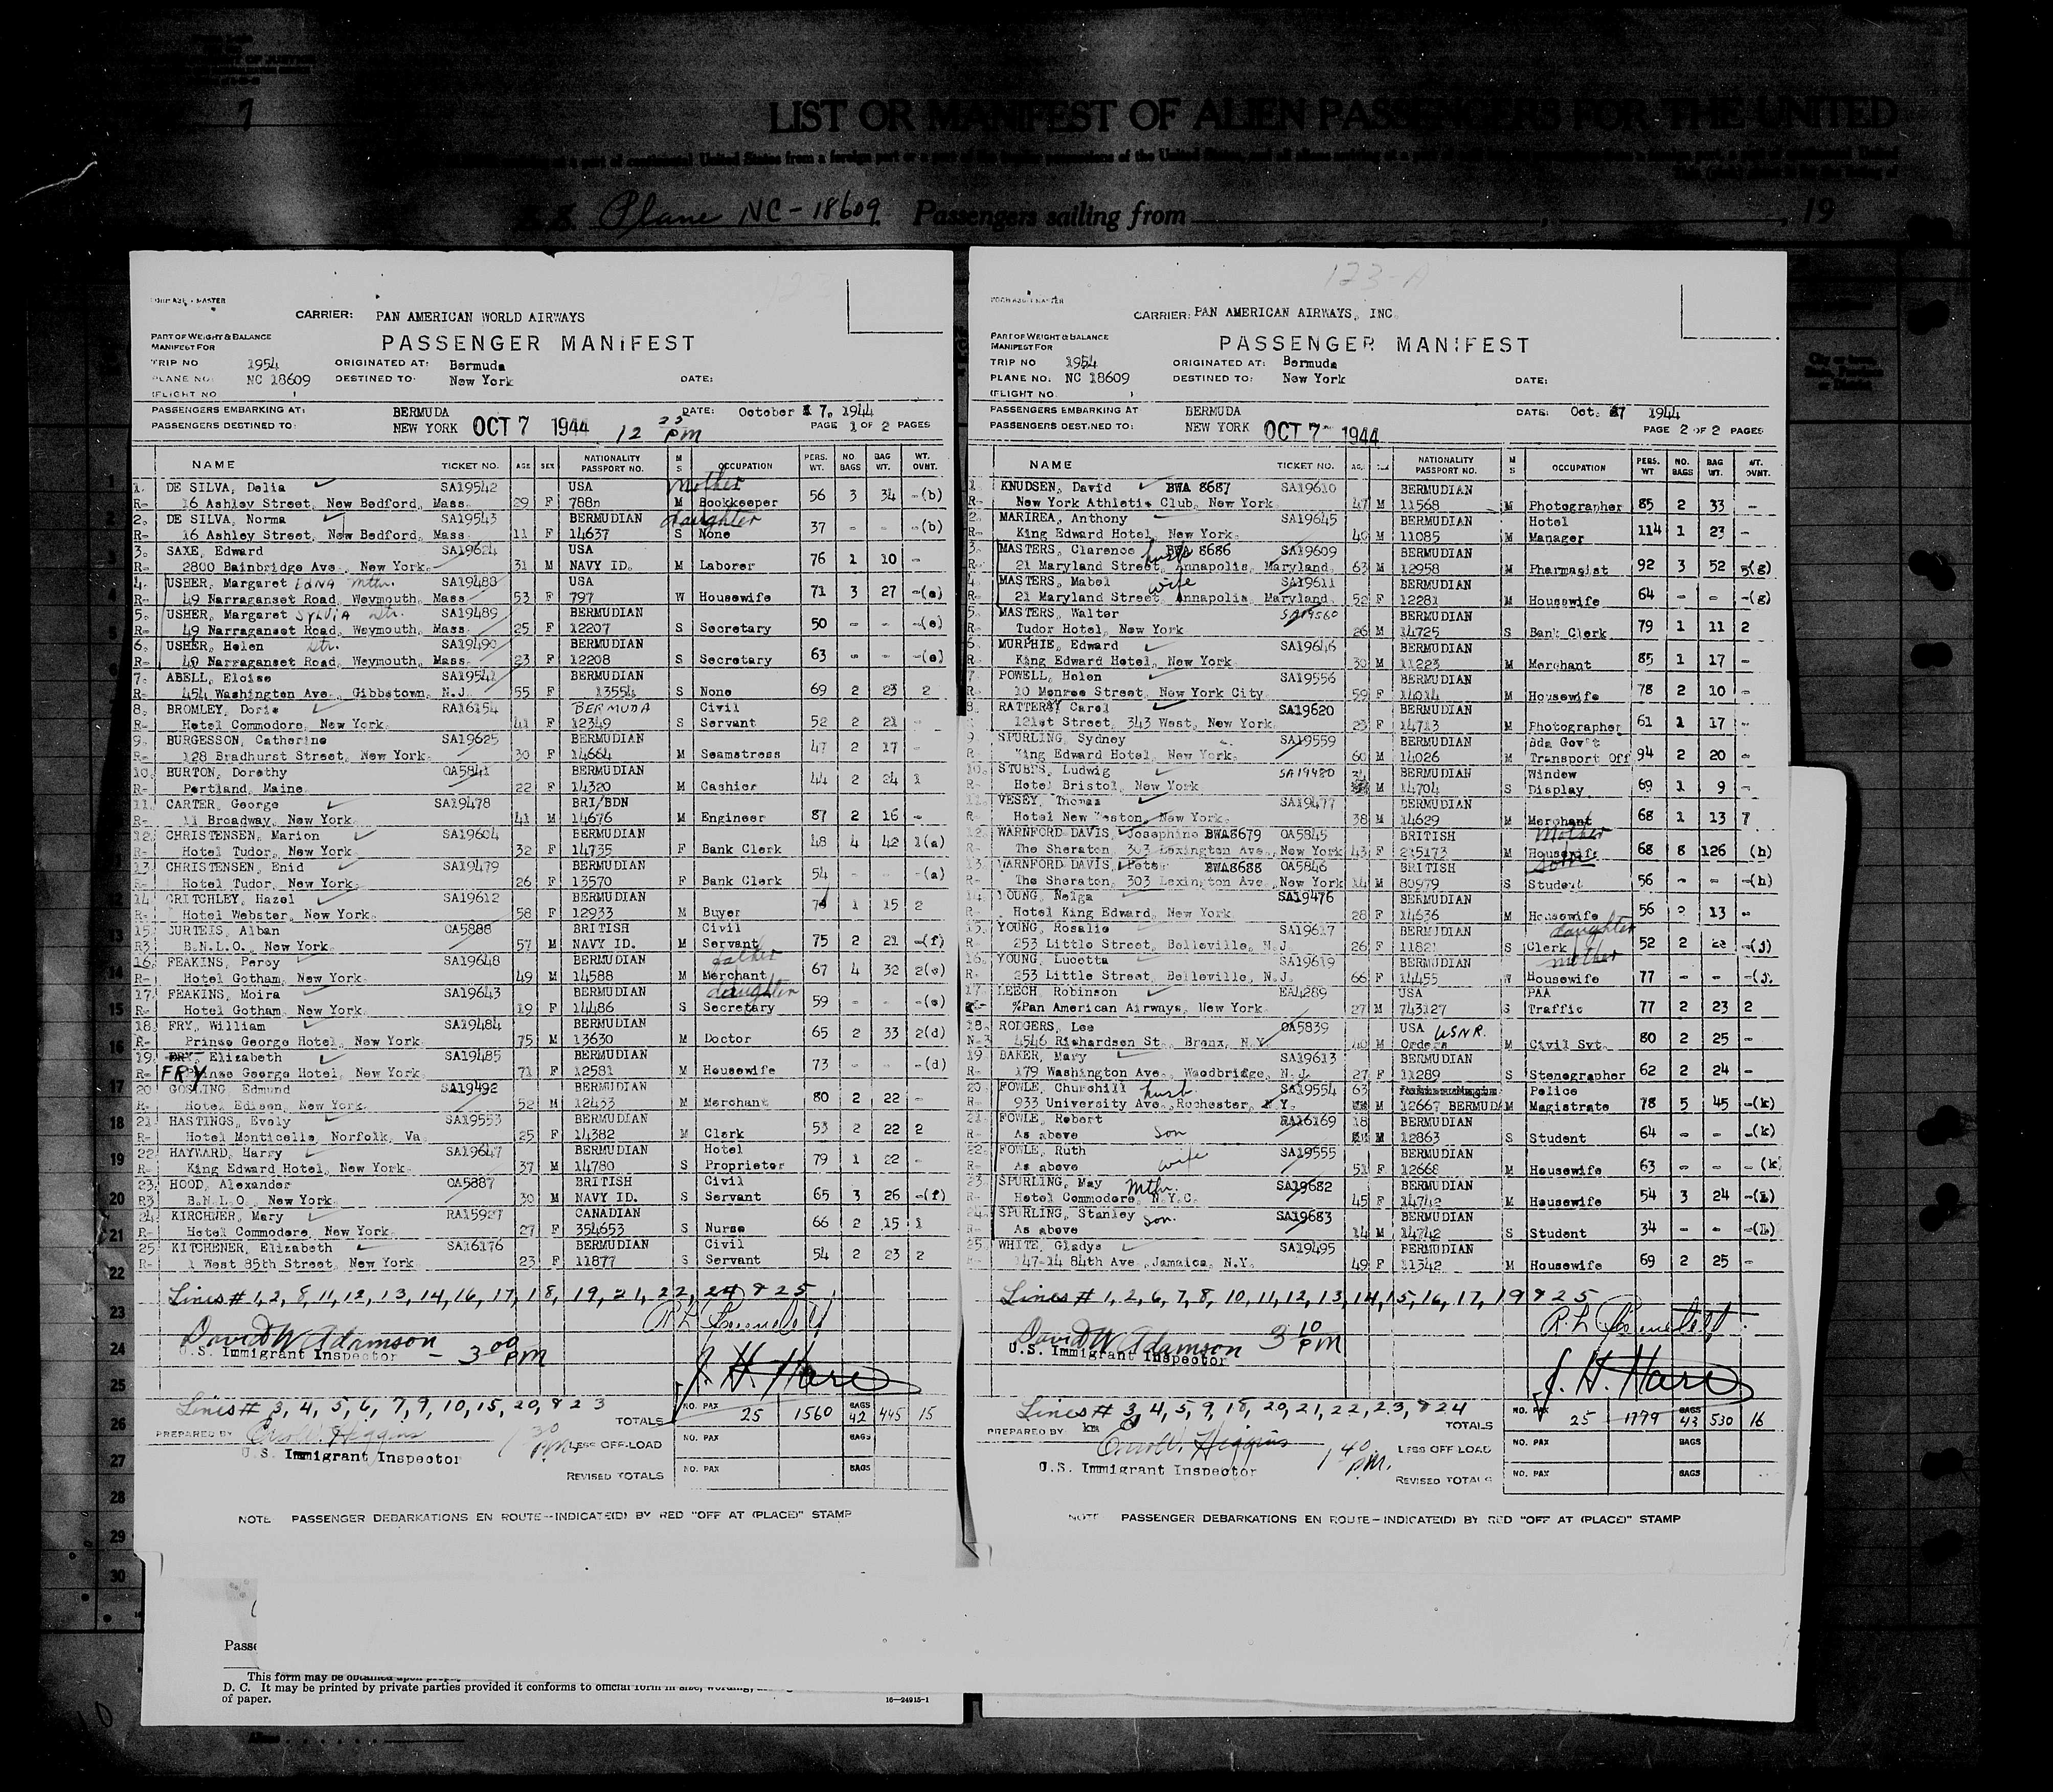 LIST OR MANIFEST OF ALIEN PASSENGERS FOR THE UNITED
Plane NC-18609 Passengers sailing from 19
CARRIER: PAN AMERICAN WORLD AIRWAYS
PART OF WEIGHT & BALANCE
MANIFEST FOR
PASSENGER MANIFEST
TRIP NO 1954 ORIGINATED AT: Bermuda
PLANE NO. NC 18609 DESTINED TO: New York DATE:
(FLIGHT NO )
PASSENGERS EMBARKING AT: BERMUDA DATE: October 7, 1944
PASSENGERS DESTINED TO: NEW YORK OCT 7 1944 12 25 PM PAGE 1 OF 2 PAGES
NAME TICKET NO. AGE SEX NATIONALITY PASSPORT NO. M S OCCUPATION PERS. WT. NO BAGS BAG WT. WT. OVNT.
1. DE SILVA, Delia SA19542 USA Mother
R- 16 Ashley Street, New Bedford, Mass 29 F 788n M Bookkeeper 56 3 34 -(b)
2. DE SILVA, Norma SA19543 BERMUDIAN daughter
R- 16 Ashley Street, New Bedford, Mass 11 F 14637 S None 37 - - -(b)
3. SAXE, Edward SA19624 USA
R- 2800 Bainbridge Ave, New York 31 M NAVY ID. M Laborer 76 1 10 -
4. USHER, Margaret EDNA Mthr. SA19488 USA
R- 49 Narraganset Road, Weymouth, Mass 53 F 797 W Housewife 71 3 27 -(e)
5. USHER, Margaret SYLVIA Dtr. SA19489 BERMUDIAN
R- 49 Narraganset Road, Weymouth, Mass 25 F 12207 S Secretary 50 - - -(e)
6. USHER, Helen Dtr. SA19490 BERMUDIAN
R- 49 Narraganset Road, Weymouth, Mass 23 F 12208 S Secretary 63 - - -(e)
7. ABELL, Eloise SA19541 BERMUDIAN
R- 454 Washington Ave, Gibbstown, N.J. 55 F 13554 S None 69 2 23 2
8. BROMLEY, Doris RA16154 BERMUDA Civil
R- Hotel Commodore, New York 41 F 12349 S Servant 52 2 21 -
9. BURGESSON, Catherine SA19625 BERMUDIAN
R- 128 Bradhurst Street, New York 30 F 14664 M Seamstress 47 2 17 -
10. BURTON, Dorothy OA5841 BERMUDIAN
R- Portland, Maine 22 F 14320 M Cashier 44 2 24 1
11. CARTER, George SA19478 BRI/BDN
R- 11 Broadway, New York 41 M 14676 M Engineer 87 2 16 -
12. CHRISTENSEN, Marion SA19604 BERMUDIAN
R- Hotel Tudor, New York 32 F 14735 F Bank Clerk 48 4 42 1(a)
13. CHRISTENSEN, Enid SA19479 BERMUDIAN
R- Hotel Tudor, New York 26 F 13570 F Bank Clerk 54 - - -(a)
14. CRITCHLEY, Hazel SA19612 BERMUDIAN
R- Hotel Webster, New York 58 F 12933 M Buyer 1 15 2
15. CURTEIS, Alban OA5888 BRITISH Civil
R3 B.N.L.O., New York 57 M NAVY ID. M Servant 75 2 21 -(f)
16. FEAKINS, Percy SA19648 BERMUDIAN father
R- Hotel Gotham, New York 49 M 14588 M Merchant 67 4 32 2(c)
17. FEAKINS, Moira SA19643 BERMUDIAN daughter
R- Hotel Gotham, New York 19 F 14486 S Secretary 59 - - -(c)
18. FRY, William SA19484 BERMUDIAN
R- Prince George Hotel, New York 75 M 13630 M Doctor 65 2 33 2(d)
19. FRY, Elizabeth SA19485 BERMUDIAN
R- FRY Prince George Hotel, New York 71 F 12581 M Housewife 73 - - -(d)
20 GOSLING, Edmund SA19492 BERMUDIAN
R- Hotel Edison, New York 52 M 12433 M Merchant 80 2 22 -
21. HASTINGS, Evely SA19553 BERMUDIAN
R- Hotel Monticello, Norfolk, Va 25 F 14382 M Clerk 53 2 22 2
22. HAYWARD, Harry SA19647 BERMUDIAN Hotel
R- King Edward Hotel, New York 37 M 14780 S Proprietor 79 1 22 -
23. HOOD, Alexander OA5887 BRITISH Civil
R3 B.N.L.O., New York 30 M NAVY ID. S Servant 65 3 26 -(f)
24. KIRCHNER, Mary RA15927 CANADIAN
R- Hotel Commodore, New York 27 F 354653 S Nurse 66 2 15 1
25. KITCHENER, Elizabeth SA16176 BERMUDIAN Civil
R- 1 West 85th Street, New York 23 F 11877 S Servant 54 2 23 2
Lines # 1, 2, 8, 11, 12, 13, 14, 16, 17, 18, 19, 21, 22, 24 & 25
David W Adamson - 3 00 PM
U.S. Immigrant Inspector
J. H. Hare
Lines # 3, 4, 5, 6, 7, 9, 10, 15, 20, & 23
TOTALS NO. PAX 25 1560 BAGS 42 445 15
PREPARED BY Errol W. Higgins 1 30 PM LESS OFF-LOAD NO. PAX BAGS
U.S. Immigrant Inspector
REVISED TOTALS NO. PAX BAGS
NOTE PASSENGER DEBARKATIONS EN ROUTE-INDICATE(D) BY RED "OFF AT (PLACE)" STAMP
This form may be obtained upon
D. C. It may be printed by private parties provided it conforms to official form in size, wording,
of paper.
16-24915-1
123-A
CARRIER: PAN AMERICAN AIRWAYS, INC.
PART OF WEIGHT & BALANCE
MANIFEST FOR
PASSENGER MANIFEST
TRIP NO 1954 ORIGINATED AT: Bermuda
PLANE NO. NC 18609 DESTINED TO: New York DATE:
(FLIGHT NO )
PASSENGERS EMBARKING AT BERMUDA DATE: Oct. 7 1944
PASSENGERS DESTINED TO: NEW YORK OCT 7 1944 PAGE 2 OF 2 PAGES
NAME TICKET NO. NATIONALITY PASSPORT NO. M S OCCUPATION PERS. WT NO. BAGS BAG WT. WT. OVNT.
1. KNUDSEN, David BWA 8687 SA19610 BERMUDIAN
R- New York Athletic Club, New York 47 M 11568 M Photographer 85 2 33 -
2. MARIREA, Anthony SA19645 BERMUDIAN Hotel
R- King Edward Hotel, New York 40 M 11085 M Manager 114 1 23 -
3. MASTERS, Clarence husb BWA 8686 SA19609 BERMUDIAN
R- 21 Maryland Street, Annapolis, Maryland 63 M 12958 M Pharmacist 92 3 52 5(g)
4. MASTERS, Mabel wife SA19611 BERMUDIAN
R- 21 Maryland Street, Annapolis, Maryland 52 F 12281 M Housewife 64 - - -(g)
5. MASTERS, Walter SA19560 BERMUDIAN
R- Tudor Hotel, New York 26 M 14725 S Bank Clerk 79 1 11 2
6. MURPHIE, Edward SA19646 BERMUDIAN
R- King Edward Hotel, New York 30 M 11223 M Merchant 85 1 17 -
7. POWELL, Helen SA19556 BERMUDIAN
R- 10 Monroe Street, New York City 59 F 14014 M Housewife 78 2 10 -
8. RATTERAY Carol SA19620 BERMUDIAN
121st Street, 343 West, New York 23 F 14713 M Photographer 61 1 17 -
9. SPURLING, Sydney SA19559 BERMUDIAN Bda Gov't
R- King Edward Hotel, New York 60 M 14026 M Transport Off 94 2 20 -
10. STUBBS, Ludwig SA19480 34 BERMUDIAN Window
R- Hotel Bristol, New York M 14704 S Display 69 1 9 -
11. VESEY, Thomas SA19477 BERMUDIAN
R- Hotel New Weston, New York 38 M 14629 M Merchant 68 1 13 7
12. WARNFORD DAVIS, Josephine BWA8679 OA5845 BRITISH Mother
R- The Sheraton, 303 Lexington Ave, New York 43 F 225173 M Housewife 68 8 126 (h)
13. WARNFORD DAVIS, Peter BWA8688 OA5846 BRITISH Son
R- The Sheraton, 303 Lexington Ave, New York 14 M 80979 S Student 56 - - -(h)
14. YOUNG, Nelga SA19476 BERMUDIAN
R- Hotel King Edward, New York 28 F 14636 M Housewife 56 2 13 -
15. YOUNG, Rosalie SA19617 BERMUDIAN daughter
R- 253 Little Street, Belleville, N.J. 26 F 11821 S Clerk 52 2 22 -(j)
16. YOUNG, Lucetta SA19619 BERMUDIAN mother
R- 253 Little Street, Belleville, N.J. 66 F 14455 W Housewife 77 - - -(j)
17. LEECH, Robinson EA4289 USA PAA
%Pan American Airways, New York 27 M 743127 S Traffic 77 2 23 2
18. RODGERS, Lee OA5839 USA USNR.
4546 Richardson St., Bronx, N.Y. 40 M Orders M Civil Svt. 80 2 25 -
19. BAKER, Mary SA19613 BERMUDIAN
R- 179 Washington Ave, Woodbridge, N.J. 27 F 11289 S Stenographer 62 2 24 -
20. FOWLE, Churchill husb SA19554 63 Police
R- 933 University Ave, Rochester, N.Y. M 12667 BERMUDA M Magistrate 78 5 45 -(k)
21. FOWLE, Robert RA16169 18 BERMUDIAN
R- As above Son M 12863 S Student 64 - - -(k)
22. FOWLE, Ruth SA19555 BERMUDIAN
R- As above wife 51 F 12668 M Housewife 63 - - -(k)
23. SPURLING, May Mthr. SA19682 BERMUDIAN
R- Hotel Commodore, N.Y.C. 45 F 14742 M Housewife 54 3 24 -(L)
24. SPURLING, Stanley Son. SA19683 BERMUDIAN
R- As above 14 M 14742 S Student 34 - - -(L)
25. WHITE, Gladys SA19495 BERMUDIAN
147-14 84th Ave, Jamaica, N.Y. 49 F 11342 M Housewife 69 2 25 -
Lines # 1, 2, 6, 7, 8, 10, 11, 12, 13, 14, 15, 16, 17, 19 & 25
David W Adamson 3 10 PM
U.S. Immigrant Inspector
J. H. Hare
Lines # 3, 4, 5, 9, 18, 20, 21, 22, 23, & 24
TOTALS NO. PAX 25 1779 BAGS 43 530 16
PREPARED BY km Errol W. Higgins 1 40 PM. LESS OFF LOAD NO. PAX BAGS
U.S. Immigrant Inspector
REVISED TOTALS NO. PAX BAGS
NOTE PASSENGER DEBARKATIONS EN ROUTE-INDICATE(D) BY RED "OFF AT (PLACE)" STAMP